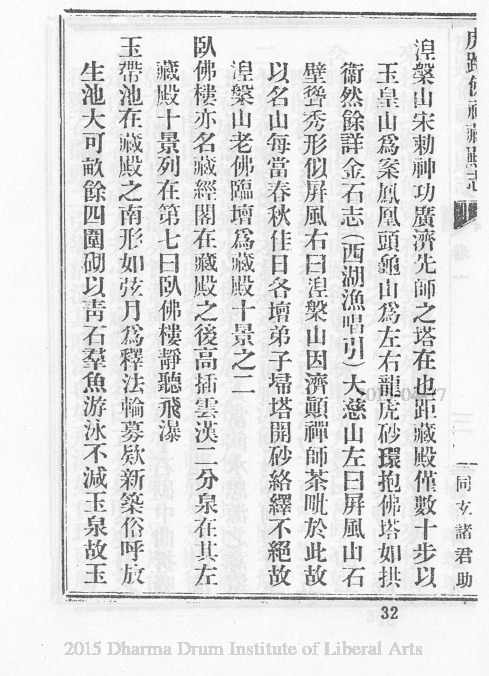 虎跑佛祖藏殿志
同文諸君助
湼槃山宋勅神功廣濟先師之塔在也距藏殿僅數十步以
玉皇山爲案鳳凰頭龜山爲左右龍虎砂環抱佛塔如拱
衞然餘詳金石志(西湖漁唱引)大慈山左曰屏風山石
壁聳秀形似屏風右曰湼槃山因濟顚禪師茶毗於此故
以名山每當春秋佳日各壇弟子埽塔開砂絡繹不絕故
湼槃山老佛臨壇爲藏殿十景之二
臥佛樓亦名藏經閣在藏殿之後高插雲漢二分泉在其左
藏殿十景列在第七曰臥佛樓靜聽飛瀑
玉帶池在藏殿之南形如弦月爲釋法輪募欵新築俗呼放
生池大可畝餘四圍砌以靑石羣魚游泳不減玉泉故玉
32
2015 Dharma Drum Institute of Liberal Arts